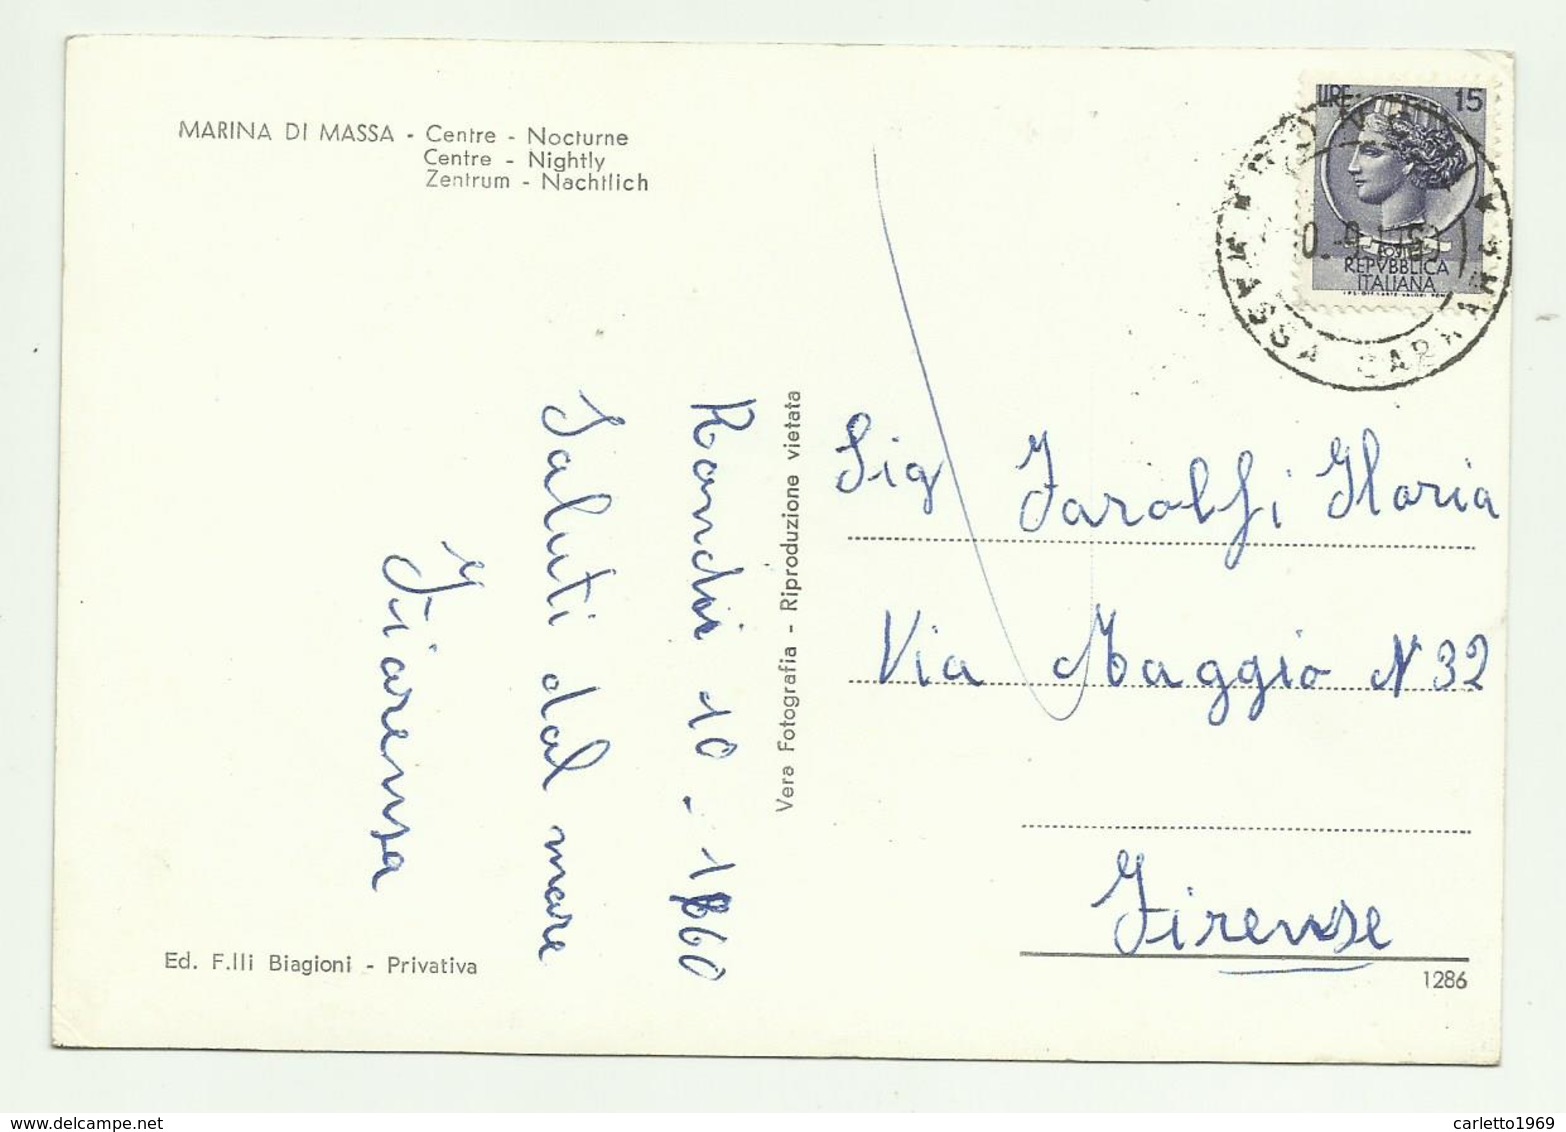 MARINA DI MASSA - Centre - Nocturne
Centre - Nightly
Zentrum - Nachtlich
LIRE 15
POSTE
REPVBBLICA
ITALIANA
MASSA CARRARA
Vera Fotografia - Riproduzione vietata
Ronchi 10 - 1860
Saluti dal mare
Fiorenza
Sig Farolfi Ilaria
Via Maggio N 32
Firenze
Ed. F.lli Biagioni - Privativa
1286
carletto1969